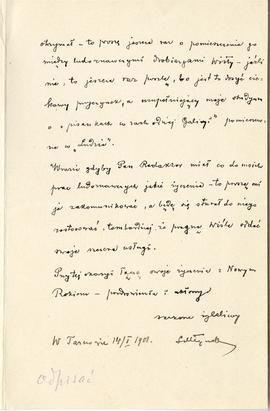 otrzymał – to proszę jeszcze raz o pomieszczenie go
między ludoznawczymi drobiazgami Wisły – jeśli
nie, to jeszcze raz poszlę, bo jest to dosyć cie-
kawy przyczynek, a uzupełniający moje studyum
o "pisankach w zachodniej Galicyi" pomieszczo-
ne w "Ludzie".
Wrazie gdyby Pan Redaktor miał co do moich
prac ludoznawczych jakie życzenia – to proszę mi
je zakomunikować, a będę się starał do niego
zastosować, tembardziej, że pragnę Wiśle oddać
swoje szczere usługi.
Przy tej okazyi łączę swoje życzenia z Nowym
Rokiem – pozdrowienia i
szczerze życzliwy
W Tarnowie 14/I 1901.
odpisać